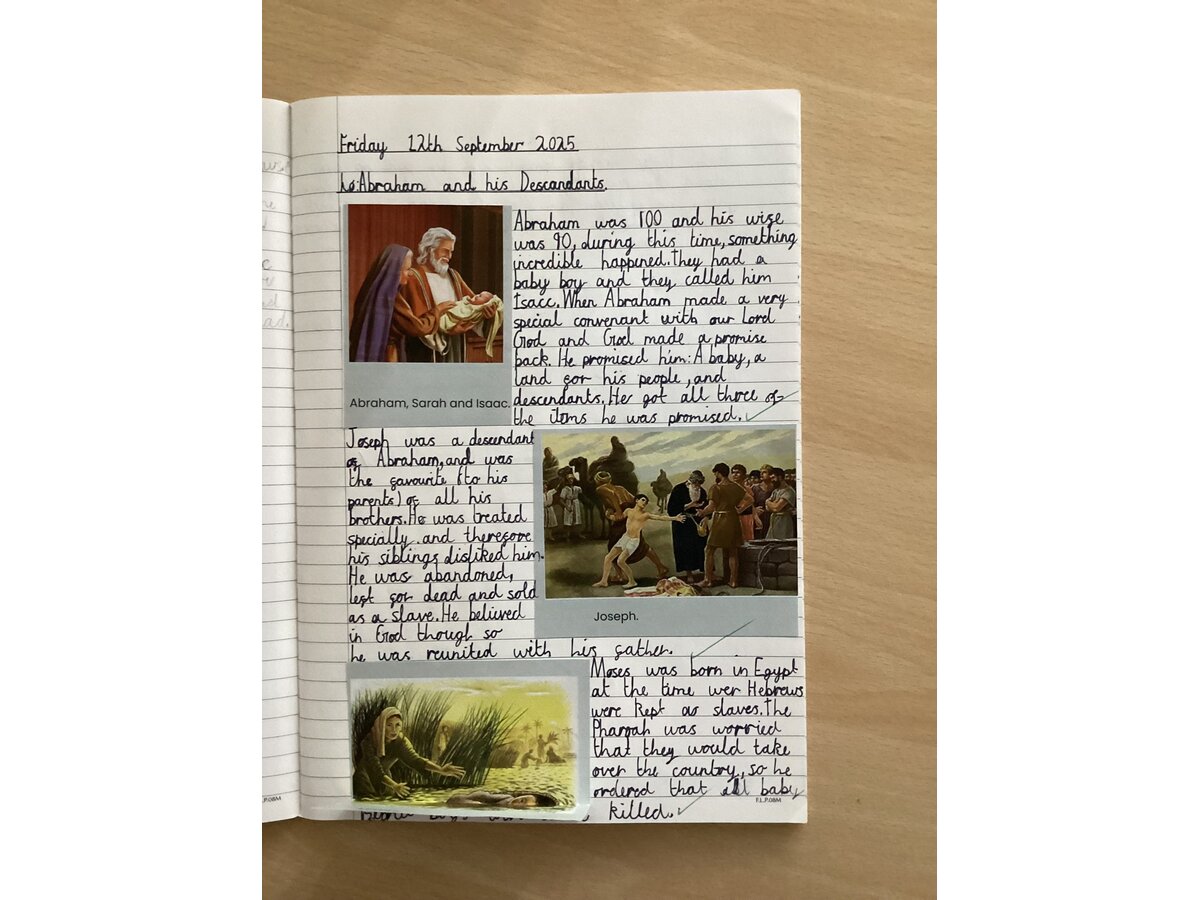 Friday 12th September 2025
Lo: Abraham and his Descandants.
Abraham was 100 and his wife
was 90, during this time, something
incredible happened. They had a
baby boy and they called him
Isacc. When Abraham made a very
special convenant with our Lord
God and God made a promise
back. He promised him: A baby, a
land for his people, and
descendants. He got all three of
the items he was promised.
Abraham, Sarah and Isaac.
Joseph was a descendant
of Abraham, and was
the favourite (to his
parents) of all his
brothers. He was treated
specially and therefore
his siblings disliked him.
He was abandoned,
left for dead and sold
as a slave. He believed
in God though so
he was reunited with his father.
Joseph.
Moses was born in Egypt
at the time wer Hebrews
were kept as slaves. The
Pharoah was worried
that they would take
over the country, so he
ordered that all baby
killed.
F.L.P.08M
L.P.08M